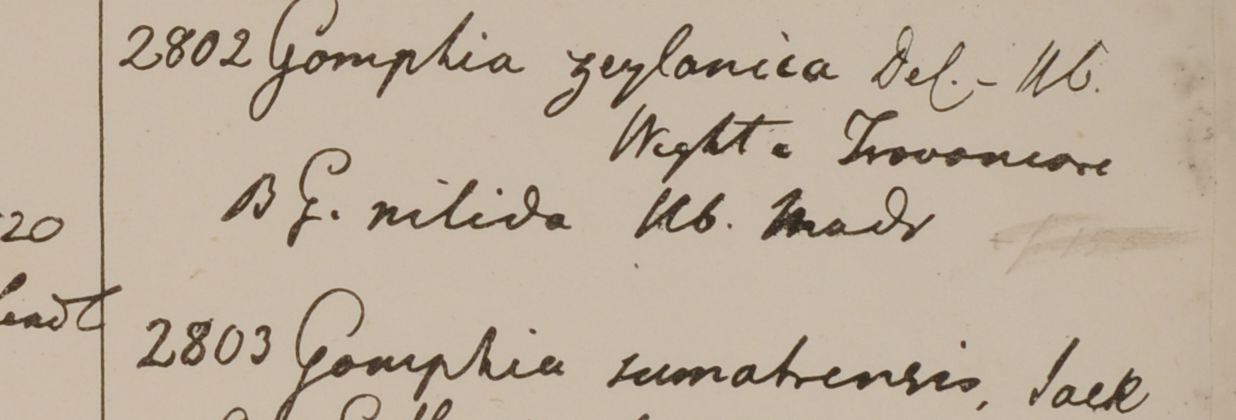 2802 Gomphia zeylanica Del. - Hb.
Wight e Travancore
B G. nitida Hb. Madr
20
2803 Gomphia sumatrensis, Jack